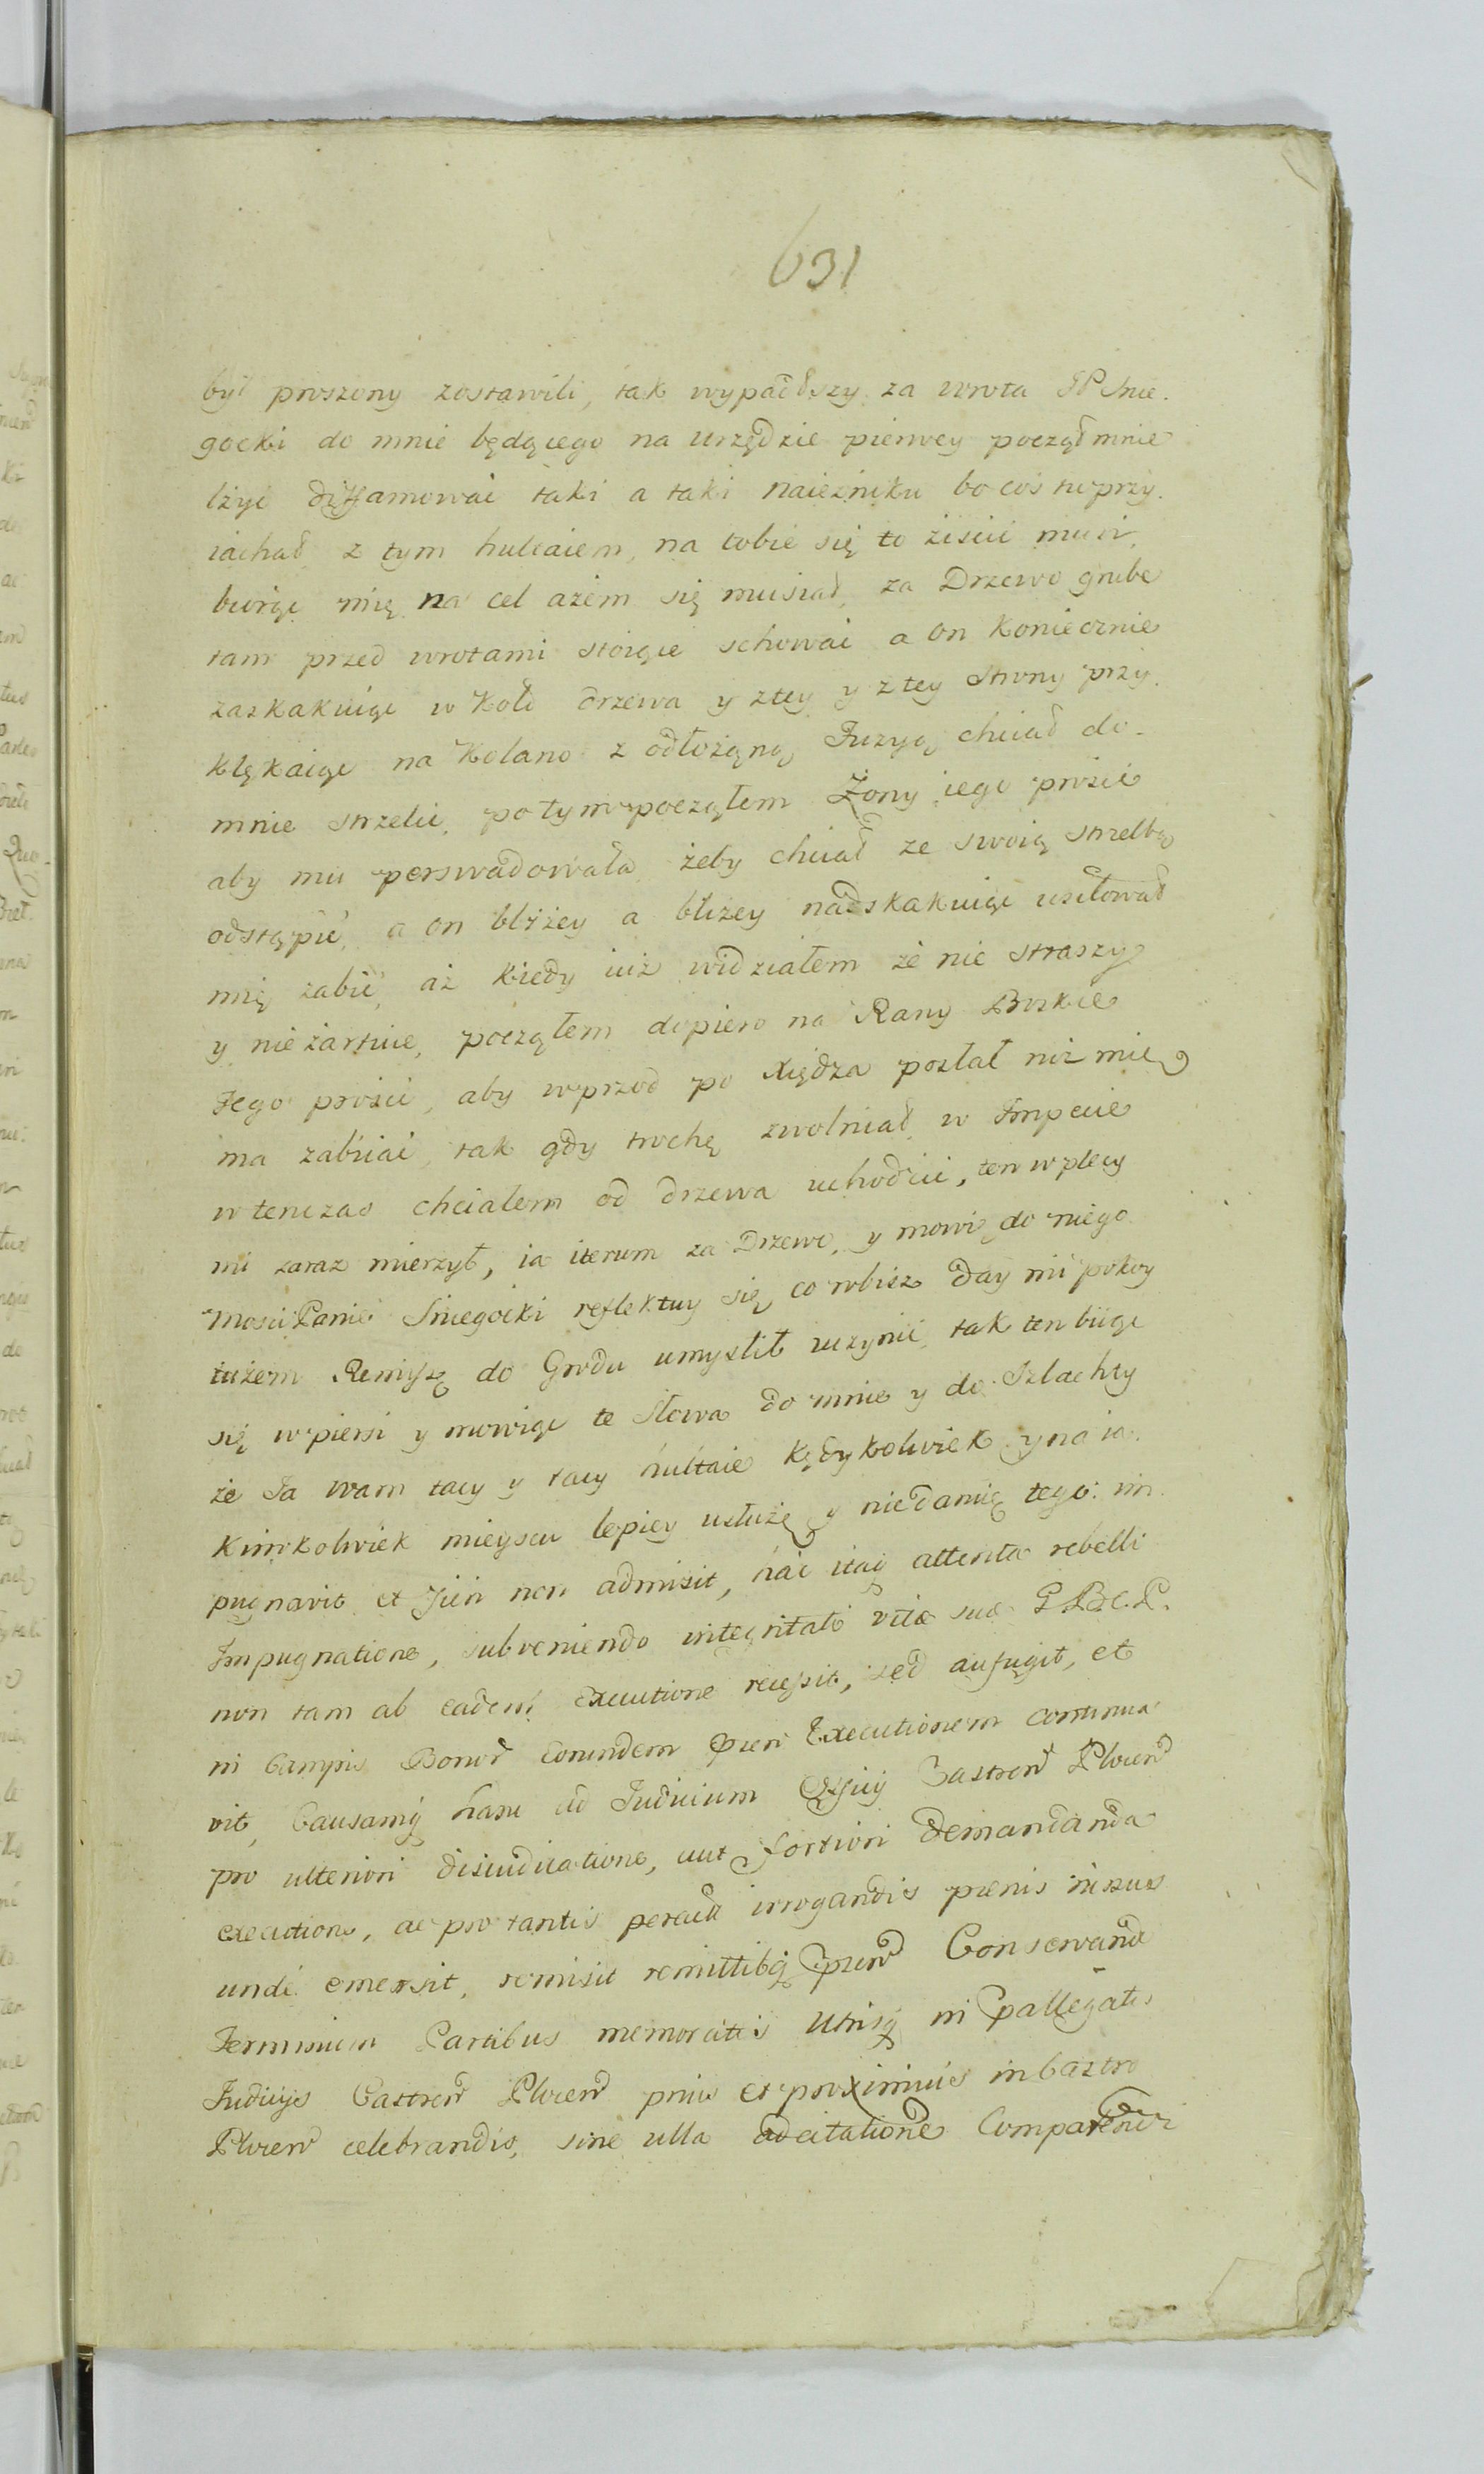 631
był proszony zostawili, tak wypadszy za wrota JP Snie-
gocki do mnie będącego na urzędzie pierwey począł mnie
lżyć diffamować taki a taki naiezniku bo coś tu przy-
iachał z tym hultaiem, na tobie się to ziscić musi,
biorąc mię na cel ażem się musiał za Drzewo grube
tam przed wrotami stoiące schować a on koniecznie
zaskakuiąc w koło drzewa y z tey y z tey strony przy-
klękaiąc na Kolano z odłożoną Fuzyą chciał do
mnie strzelić, potym począłem Żony iego prosić
aby mu perswadowała żeby chciał ze swoią strzelbą
odstąpić, a on bliżey a bliżey nadskakuiąc usiłował
mię zabić, aż kiedy iuż widziałem że nie straszy
y nie żartuie, począłem dopiero na Rany Boskie
Jego prosić, aby wprzod po Xiędza posłał niż mię
ma zabiiać, tak gdy trochę zwolniał w Impecie
wtenczas chciałem od drzewa uchodzić, ten w plecy
mi zaraz mierzył, ia iterum za Drzewo, y mowię do niego
Mosci Panie Sniegocki reflektuy się co robisz day mi pokoy
iużem Remissę do Grodu umyslił uczynić, tak ten biiąc
się w piersi y mowiąc te słowa do mnie y do Szlachty
że Ja wam tacy y tacy hultaie kędykolwiek y na ia-
kimkolwiek mieyscu lepiey usłużę y nie damię tego: im-
pugnavit et Jien non admisit, hac itaq attenta rebelli
Impugnatione, subveniendo integritati vitæ suæ G.B.C.P.
non tam ab eadem executione recessit, sed aufugit, et
in Campis Bonor Eorundem pñen Executionem continua-
vit, Causamq hanc ad Judicium Offcij Castren Plocen
pro ulteriori disiudicatione, aut fortiori demandanda
executione, ac pro tantis percull irrogandis pœnis rursus
unde emersit, remisit remittitq pñen Conservand
Terminum Partibus memoratis Utrisq in pallegatis
Judicijs Castren Plocen primis et proximius in Castro
Plocen celebrandis, sine ulla adcitatione Comparendi